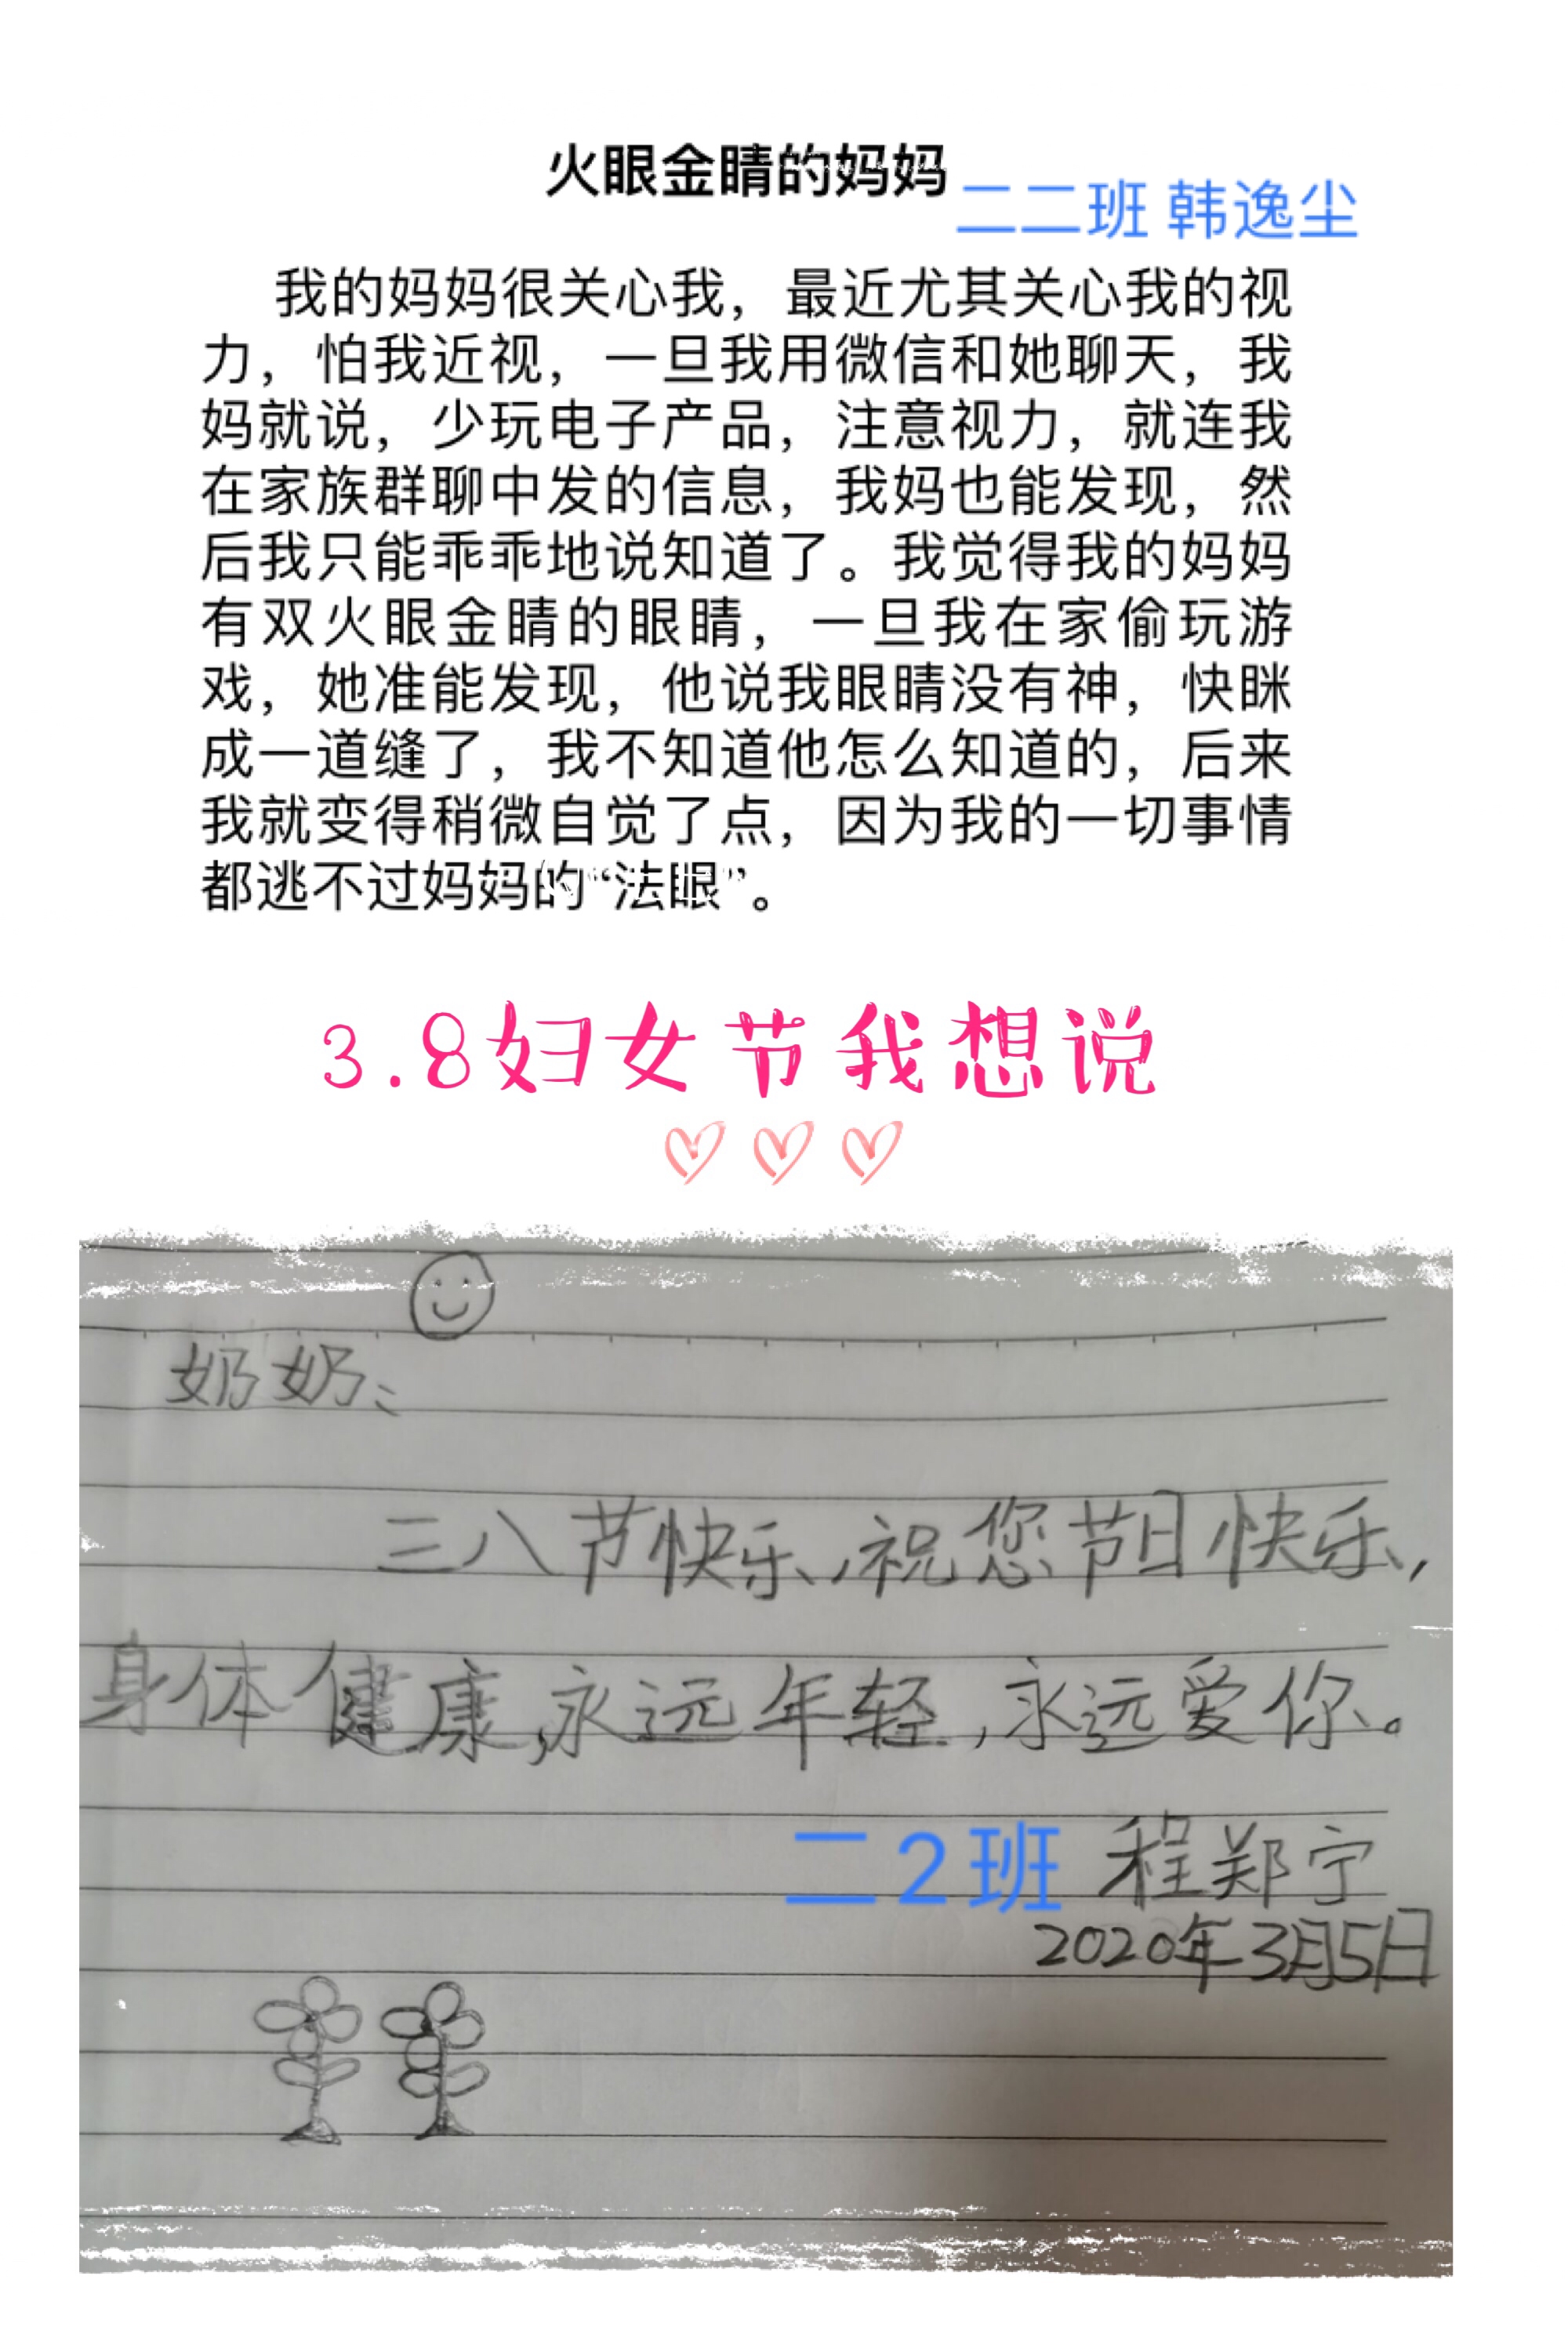 火眼金睛的妈妈
二二班 韩逸尘
我的妈妈很关心我，最近尤其关心我的视
力，怕我近视，一旦我用微信和她聊天，我
妈就说，少玩电子产品，注意视力，就连我
在家族群聊中发的信息，我妈也能发现，然
后我只能乖乖地说知道了。我觉得我的妈妈
有双火眼金睛的眼睛，一旦我在家偷玩游
戏，她准能发现，他说我眼睛没有神，快眯
成一道缝了，我不知道他怎么知道的，后来
我就变得稍微自觉了点，因为我的一切事情
都逃不过妈妈的“法眼”。
3.8妇女节我想说
奶奶：
三八节快乐，祝您节日快乐，
身体健康，永远年轻，永远爱你。
二2班 程郑宁
2020年3月5日